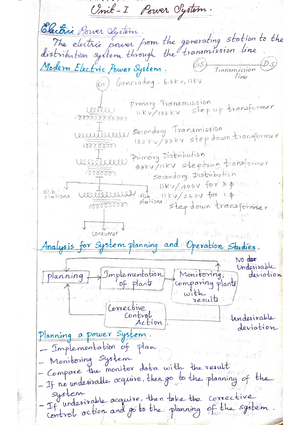 Unit-I Power System.
Electric Power System
The electric power from the generating station to the
distribution system through the transmission line.
Modern Electric Power System.
GS
D.S
Transmission
line
Generating - 6.6kV, 11kV
Primary Transmission
11kV/132kV step up transformer
Secondary Transmission
132kV/33kV step down transformer
Primary Distribution
33kV/11kV step down transformer
Secondary Distribution
11kV/400V for 3 φ
11kV/230V for 1 φ
step down transformer
Sub
stations
Sub
stations
consumer
Analysis for System planning and Operation Studies.
No
Undesirable
deviation
Planning
Implementation
of plants
Monitoring,
comparing plants
with
result
Corrective
Control
Action
Undesirable
deviation
Planning a power System.
- Implementation of plan
- Monitoring System
- Compare the monitor data with the result
- If no undesirable acquire, then go to the planning of the
system
- If undesirable acquire, then take the corrective
control action and go to the planning of the system.